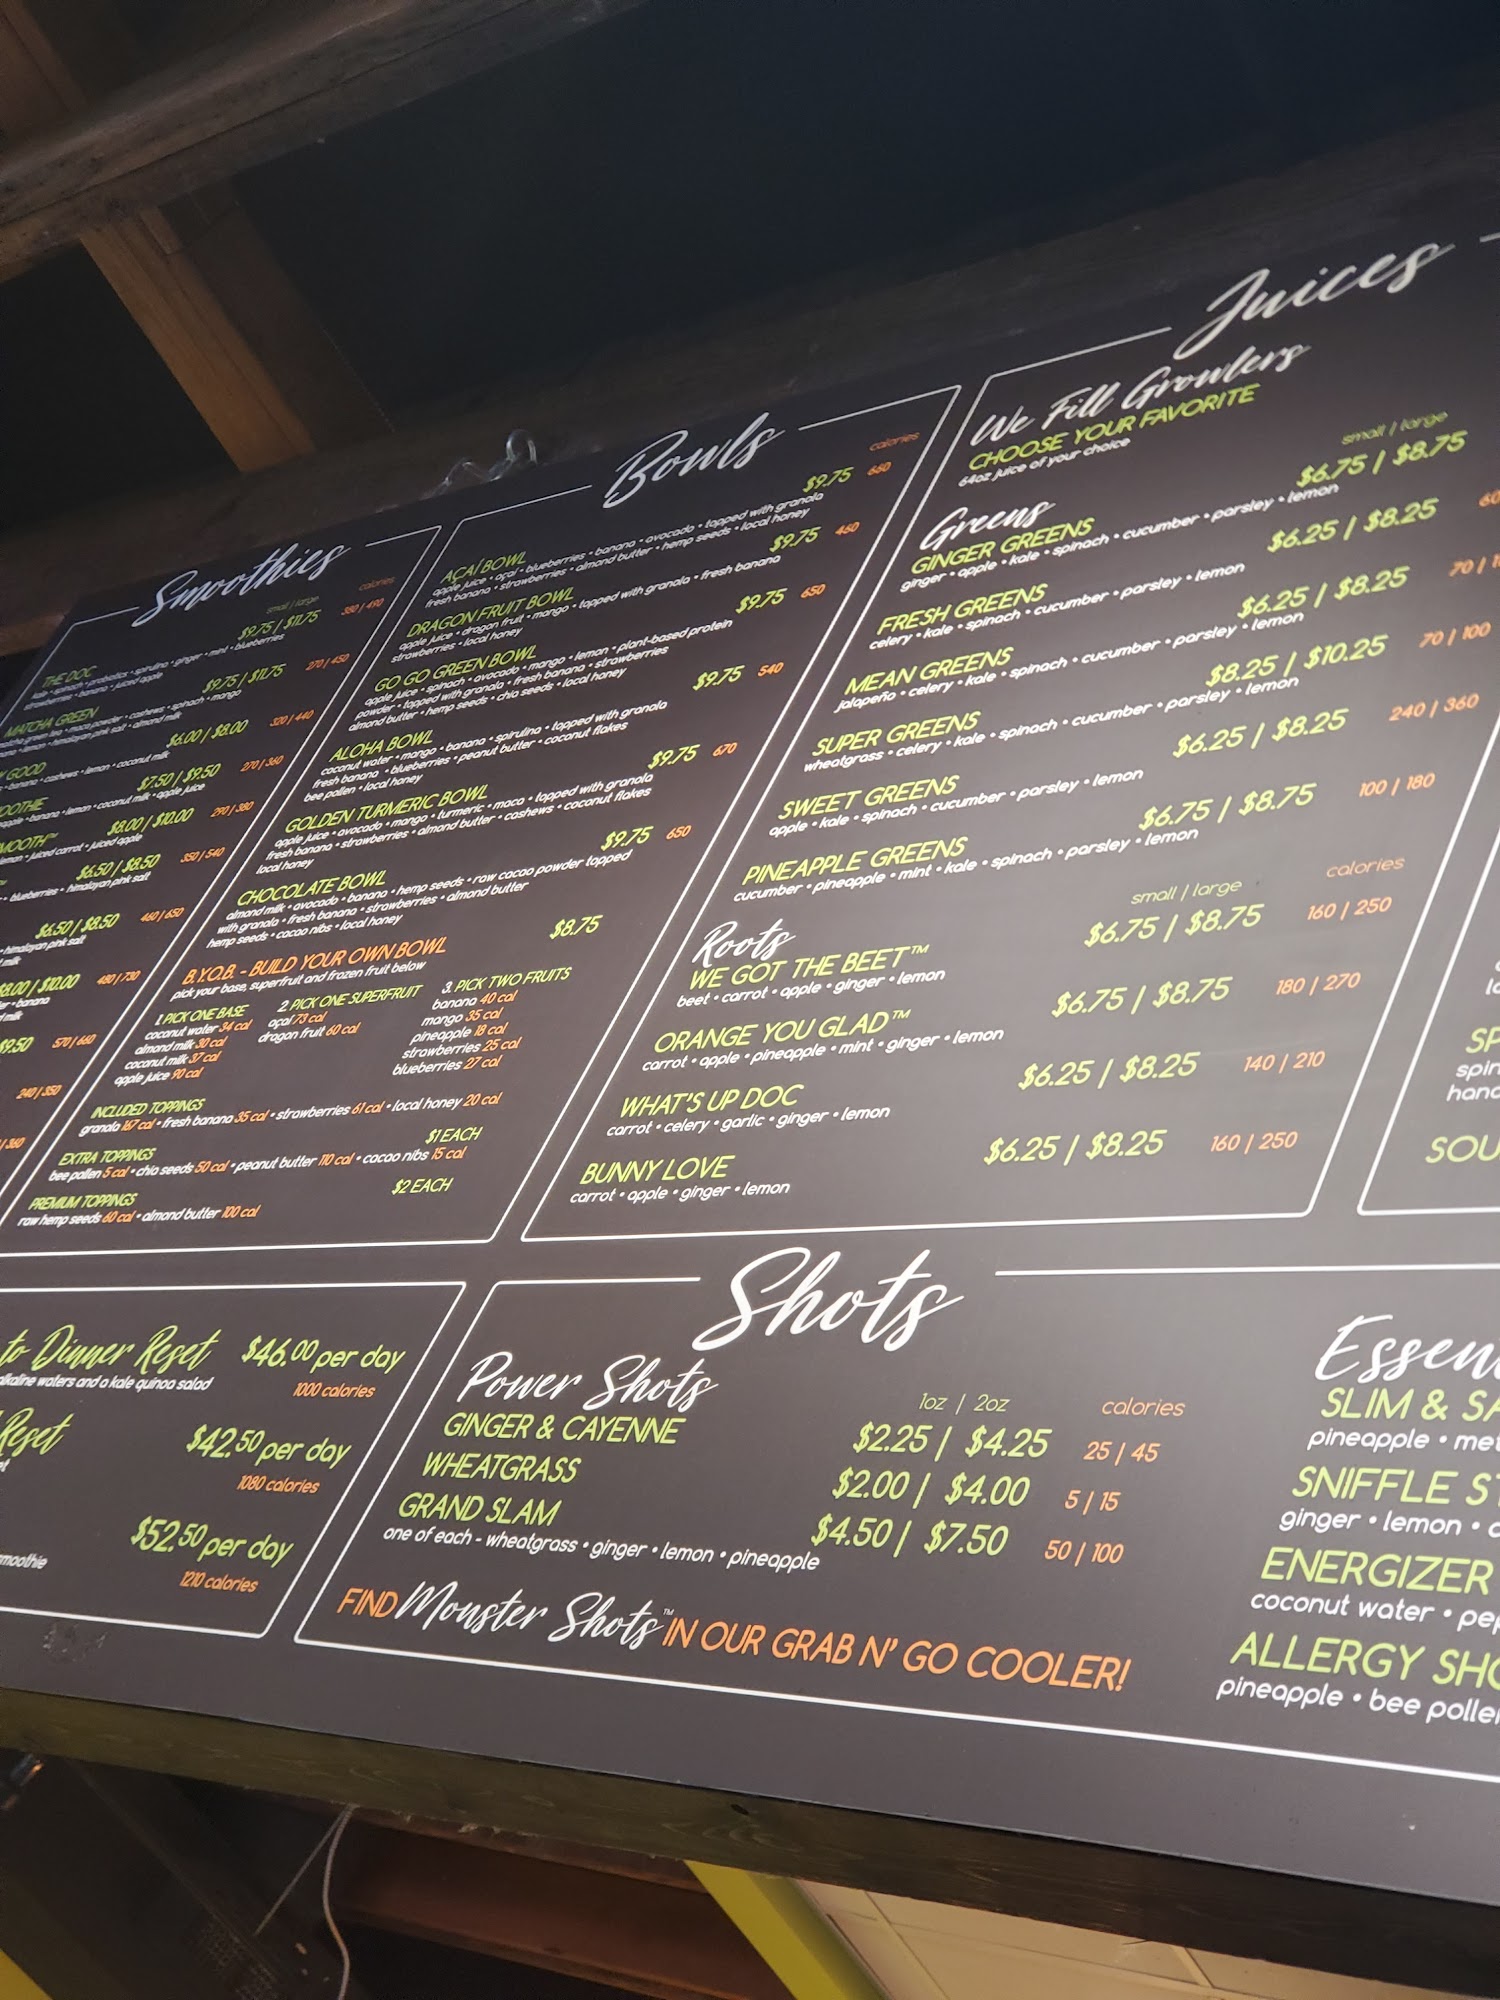 Smoothies
small | large
calories
THE DOC
$9.75 | $11.75
380 | 490
strawberries • banana • juiced apple
MATCHA GREEN
$9.75 | $11.75
270 | 450
• lemon • himalayan pink salt • almond milk
GOOD
$6.00 | $8.00
320 | 440
banana • cashews • lemon • coconut milk
$7.50 | $9.50
270 | 360
banana • lemon • coconut milk • apple juice
$8.00 | $10.00
290 | 380
• juiced carrot • juiced apple
$6.50 | $8.50
350 | 540
• blueberries • himalayan pink salt
$6.50 | $8.50
460 | 650
• himalayan pink salt
milk
$8.00 | $10.00
480 | 730
• banana
milk
$9.50
570 | 660
240 | 350
| 360
Bowls
calories
AÇAÍ BOWL
$9.75
680
apple juice • açaí • blueberries • banana • avocado • topped with granola
fresh banana • strawberries • almond butter • hemp seeds • local honey
DRAGON FRUIT BOWL
$9.75
460
apple juice • dragon fruit • mango • topped with granola • fresh banana
strawberries • local honey
GO GO GREEN BOWL
$9.75
650
apple juice • spinach • avocado • mango • lemon • plant-based protein
powder • topped with granola • fresh banana • strawberries
almond butter • hemp seeds • chia seeds • local honey
ALOHA BOWL
$9.75
540
coconut water • mango • banana • spirulina • topped with granola
fresh banana • blueberries • peanut butter • coconut flakes
bee pollen • local honey
GOLDEN TURMERIC BOWL
$9.75
670
apple juice • avocado • mango • turmeric • maca • topped with granola
fresh banana • strawberries • almond butter • cashews • coconut flakes
local honey
CHOCOLATE BOWL
$9.75
650
almond milk • avocado • banana • hemp seeds • raw cacao powder topped
with granola • fresh banana • strawberries • almond butter
hemp seeds • cacao nibs • local honey
B.Y.O.B. - BUILD YOUR OWN BOWL
$8.75
pick your base, superfruit and frozen fruit below
1. PICK ONE BASE
coconut water 34 cal
almond milk 30 cal
coconut milk 37 cal
apple juice 90 cal
2. PICK ONE SUPERFRUIT
açaí 73 cal
dragon fruit 60 cal
3. PICK TWO FRUITS
banana 40 cal
mango 35 cal
pineapple 18 cal
strawberries 25 cal
blueberries 27 cal
INCLUDED TOPPINGS
granola 167 cal • fresh banana 35 cal • strawberries 61 cal • local honey 20 cal
EXTRA TOPPINGS
$1 EACH
bee pollen 5 cal • chia seeds 50 cal • peanut butter 110 cal • cacao nibs 15 cal
PREMIUM TOPPINGS
$2 EACH
raw hemp seeds 60 cal • almond butter 100 cal
Juices
We Fill Growlers
CHOOSE YOUR FAVORITE
64oz juice of your choice
small | large
Greens
GINGER GREENS
$6.75 | $8.75
ginger • apple • kale • spinach • cucumber • parsley • lemon
FRESH GREENS
$6.25 | $8.25
celery • kale • spinach • cucumber • parsley • lemon
MEAN GREENS
$6.25 | $8.25
jalapeño • celery • kale • spinach • cucumber • parsley • lemon
SUPER GREENS
$8.25 | $10.25
70 | 100
wheatgrass • celery • kale • spinach • cucumber • parsley • lemon
SWEET GREENS
$6.25 | $8.25
240 | 360
apple • kale • spinach • cucumber • parsley • lemon
PINEAPPLE GREENS
$6.75 | $8.75
100 | 180
cucumber • pineapple • mint • kale • spinach • parsley • lemon
Roots
small | large
calories
WE GOT THE BEET™
$6.75 | $8.75
160 | 250
beet • carrot • apple • ginger • lemon
ORANGE YOU GLAD™
$6.75 | $8.75
180 | 270
carrot • apple • pineapple • mint • ginger • lemon
WHAT'S UP DOC
$6.25 | $8.25
140 | 210
carrot • celery • garlic • ginger • lemon
BUNNY LOVE
$6.25 | $8.25
160 | 250
carrot • apple • ginger • lemon
SP
spin
hand
SOU
to Dinner Reset
$46.00 per day
alkaline waters and a kale quinoa salad
1000 calories
Reset
$42.50 per day
1080 calories
$52.50 per day
smoothie
1210 calories
Shots
Power Shots
1oz | 2oz
calories
GINGER & CAYENNE
$2.25 | $4.25
25 | 45
WHEATGRASS
$2.00 | $4.00
5 | 15
GRAND SLAM
$4.50 | $7.50
50 | 100
one of each - wheatgrass • ginger • lemon • pineapple
FIND Monster Shots™ IN OUR GRAB N' GO COOLER!
Essen
SLIM & SA
pineapple • met
SNIFFLE S
ginger • lemon •
ENERGIZER
coconut water • pep
ALLERGY SHO
pineapple • bee pollen